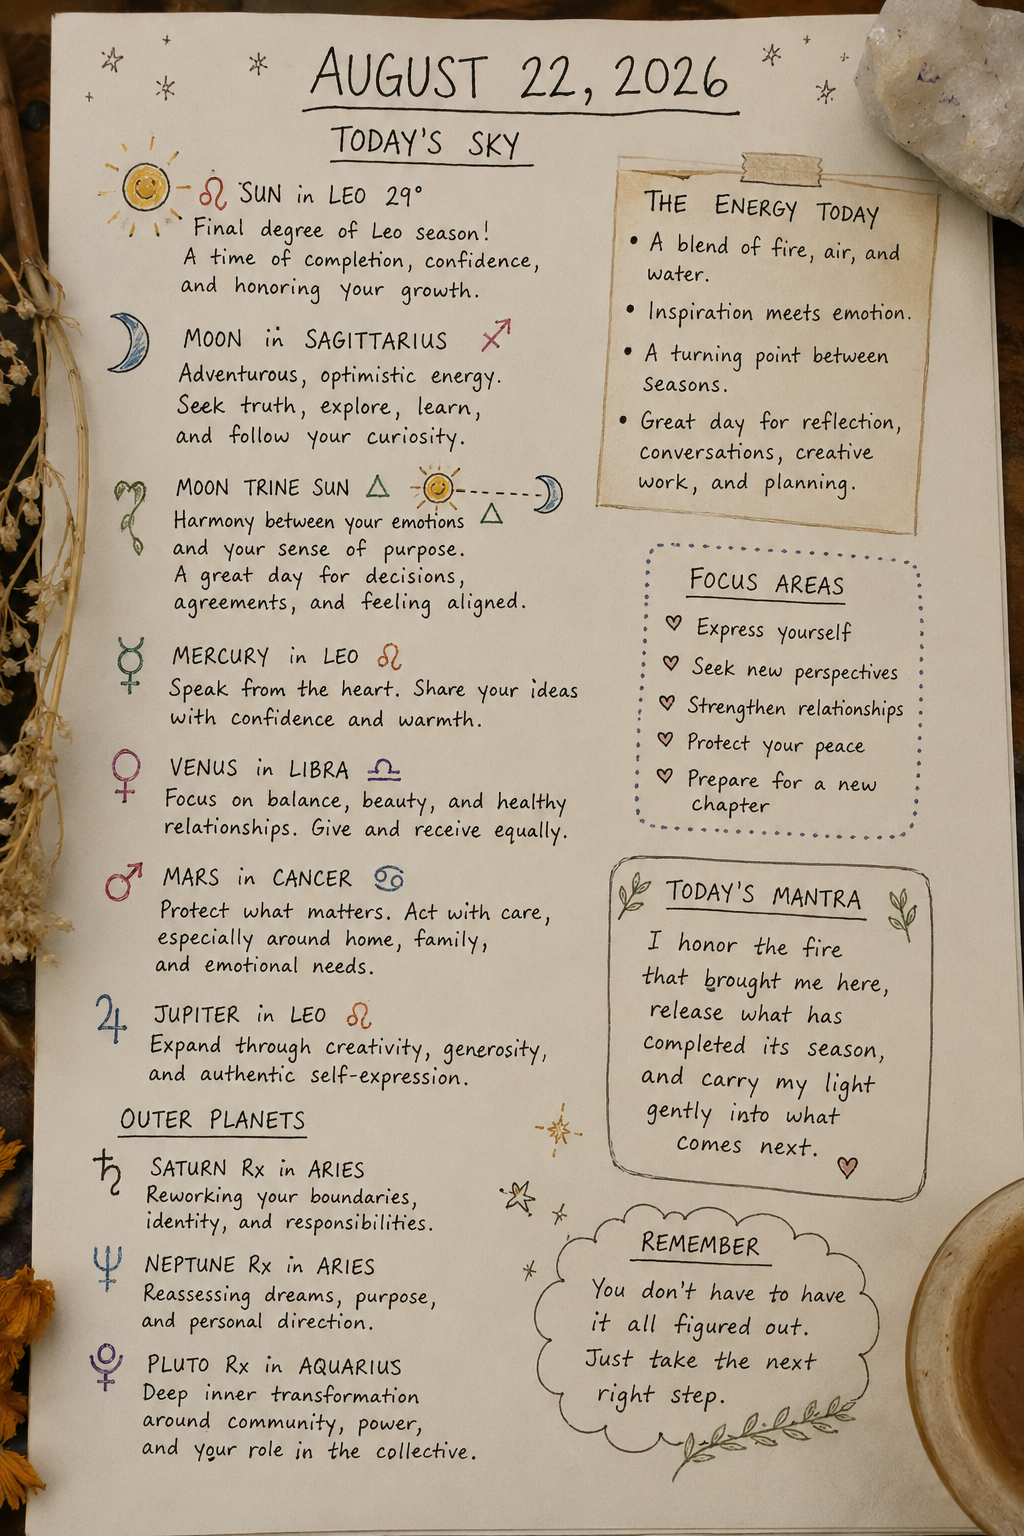 AUGUST 22, 2026
TODAY'S SKY
♌ SUN in LEO 29°
Final degree of Leo season!
A time of completion, confidence,
and honoring your growth.
MOON in SAGITTARIUS ♐
Adventurous, optimistic energy.
Seek truth, explore, learn,
and follow your curiosity.
MOON TRINE SUN △
△
Harmony between your emotions
and your sense of purpose.
A great day for decisions,
agreements, and feeling aligned.
☿ MERCURY in LEO ♌
Speak from the heart. Share your ideas
with confidence and warmth.
♀ VENUS in LIBRA ♎
Focus on balance, beauty, and healthy
relationships. Give and receive equally.
♂ MARS in CANCER ♋
Protect what matters. Act with care,
especially around home, family,
and emotional needs.
♃ JUPITER in LEO ♌
Expand through creativity, generosity,
and authentic self-expression.
OUTER PLANETS
♄ SATURN Rx in ARIES
Reworking your boundaries,
identity, and responsibilities.
♆ NEPTUNE Rx in ARIES
Reassessing dreams, purpose,
and personal direction.
PLUTO Rx in AQUARIUS
Deep inner transformation
around community, power,
and your role in the collective.
THE ENERGY TODAY
• A blend of fire, air, and
water.
• Inspiration meets emotion.
• A turning point between
seasons.
• Great day for reflection,
conversations, creative
work, and planning.
FOCUS AREAS
♡ Express yourself
♡ Seek new perspectives
♡ Strengthen relationships
♡ Protect your peace
♡ Prepare for a new
chapter
TODAY'S MANTRA
I honor the fire
that brought me here,
release what has
completed its season,
and carry my light
gently into what
comes next.
REMEMBER
You don't have to have
it all figured out.
Just take the next
right step.